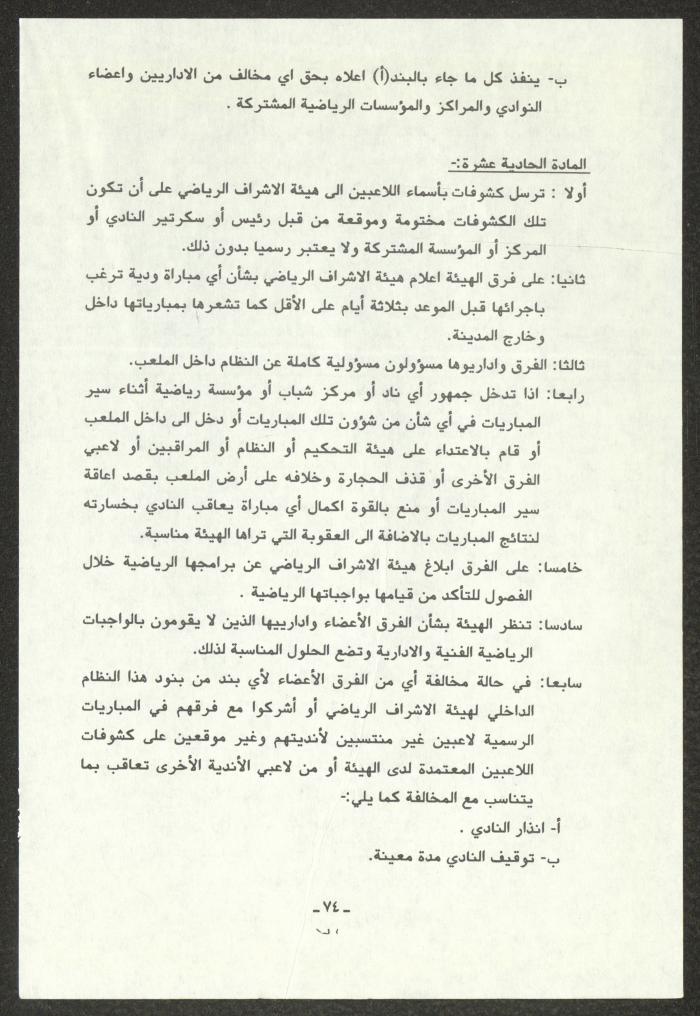 ب- ينفذ كل ما جاء بالبند(أ) اعلاه بحق اي مخالف من الاداريين واعضاء
النوادي والمراكز والمؤسسات الرياضية المشتركة .
المادة الحادية عشرة:-
أولا : ترسل كشوفات بأسماء اللاعبين الى هيئة الاشراف الرياضي على أن تكون
تلك الكشوفات مختومة وموقعة من قبل رئيس أو سكرتير النادي أو
المركز أو المؤسسة المشتركة ولا يعتبر رسميا بدون ذلك.
ثانيا: على فرق الهيئة اعلام هيئة الاشراف الرياضي بشأن أي مباراة ودية ترغب
باجرائها قبل الموعد بثلاثة أيام على الأقل كما تشعرها بمبارياتها داخل
وخارج المدينة.
ثالثا: الفرق واداريوها مسؤولون مسؤولية كاملة عن النظام داخل الملعب.
رابعا: اذا تدخل جمهور أي ناد أو مركز شباب أو مؤسسة رياضية أثناء سير
المباريات في أي شأن من شؤون تلك المباريات أو دخل الى داخل الملعب
أو قام بالاعتداء على هيئة التحكيم أو النظام أو المراقبين أو لاعبي
الفرق الأخرى أو قذف الحجارة وخلافه على أرض الملعب بقصد اعاقة
سير المباريات أو منع بالقوة اكمال أي مباراة يعاقب النادي بخسارته
لنتائج المباريات بالاضافة الى العقوبة التي تراها الهيئة مناسبة.
خامسا: على الفرق ابلاغ هيئة الاشراف الرياضي عن برامجها الرياضية خلال
الفصول للتأكد من قيامها بواجباتها الرياضية .
سادسا: تنظر الهيئة بشأن الفرق الأعضاء وادارييها الذين لا يقومون بالواجبات
الرياضية الفنية والادارية وتضع الحلول المناسبة لذلك.
سابعا: في حالة مخالفة أي من الفرق الأعضاء لأي بند من بنود هذا النظام
الداخلي لهيئة الاشراف الرياضي أو أشركوا مع فرقهم في المباريات
الرسمية لاعبين غير منتسبين لأنديتهم وغير موقعين على كشوفات
اللاعبين المعتمدة لدى الهيئة أو من لاعبي الأندية الأخرى تعاقب بما
يتناسب مع المخالفة كما يلي:-
أ- انذار النادي .
ب- توقيف النادي مدة معينة.
ـ ٧٤ ـ